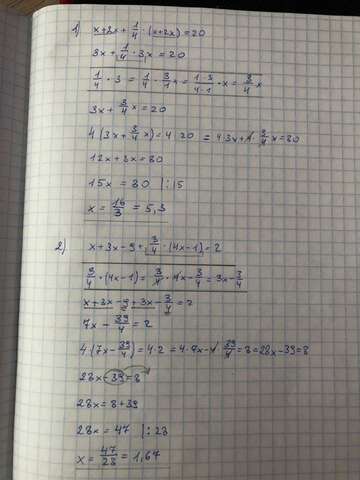 1) x+2x+1/4·(x+2x)=20
3x+1/4·3x=20
1/4·3=1/4·3/1x=1·3/4·1·x=3/4x
3x+3/4x=20
4(3x+3/4x)=4·20 =4·3x+4·3/4x=80
12x+3x=80
15x=80 |:15
x=16/3=5,3
2) x+3x-9+3/4·(4x-1)=2
3/4·(4x-1)=3/4·4x-3/4=3x-3/4
x+3x-9+3x-3/4=2
7x-39/4=2
4(7x-39/4)=4·2=4·7x-4·39/4=8=28x-39=8
28x-39=8
28x=8+39
28x=47 |:28
x=47/28=1,67